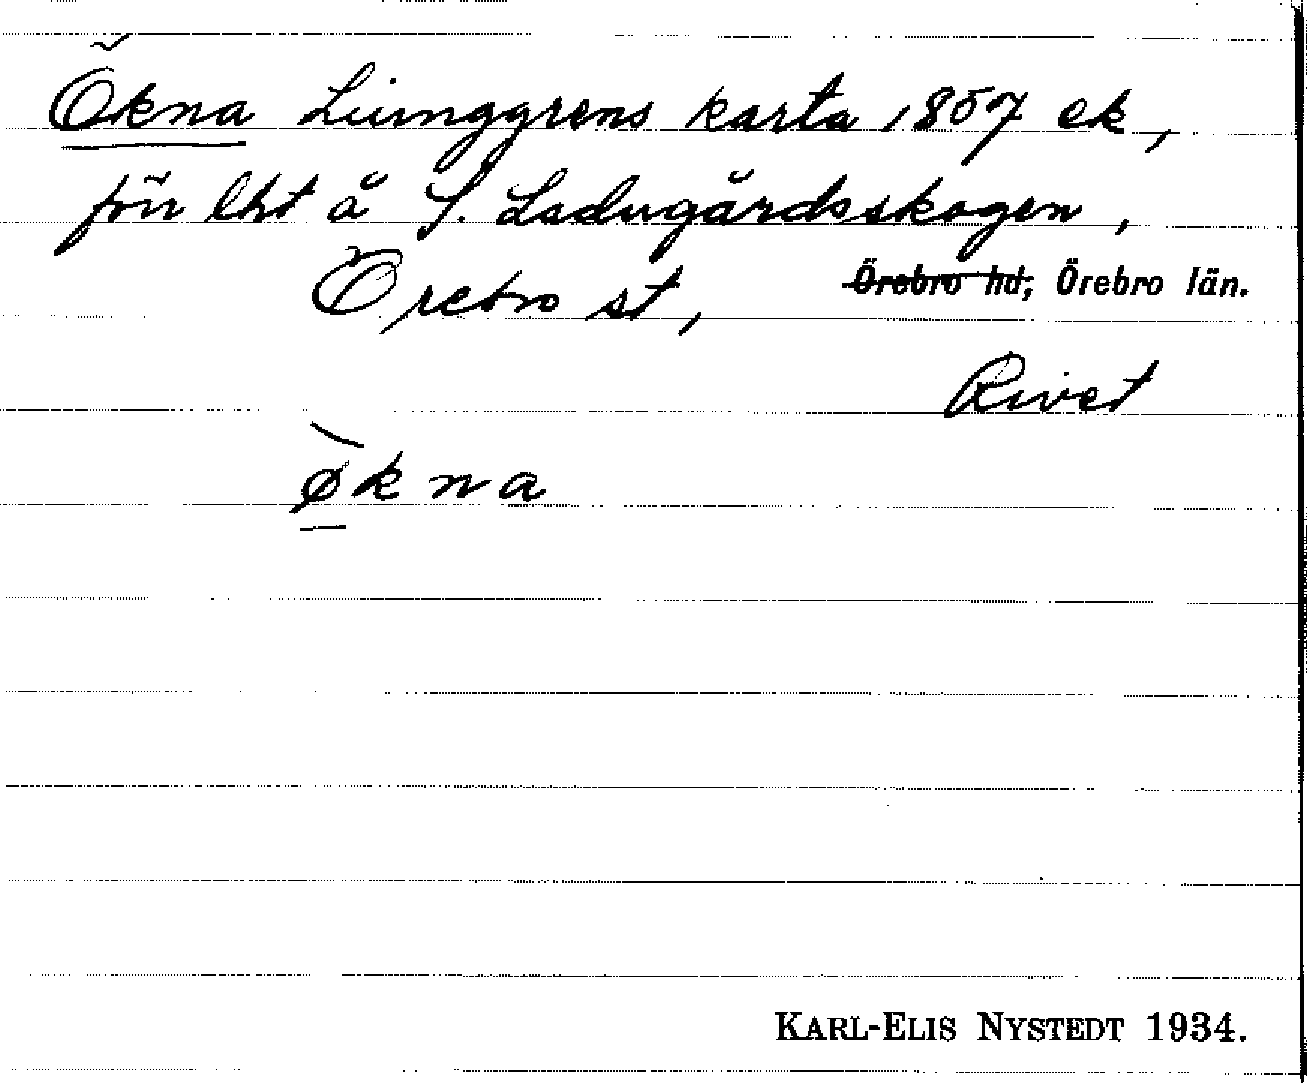 Ökna Ljunggrens karta 1857 ek,
förr lht å S. Ladugårdsskogen,
Örebro st, Örebro hd, Örebro län.
Rivet
økna
KARL-ELIS NYSTEDT 1934.